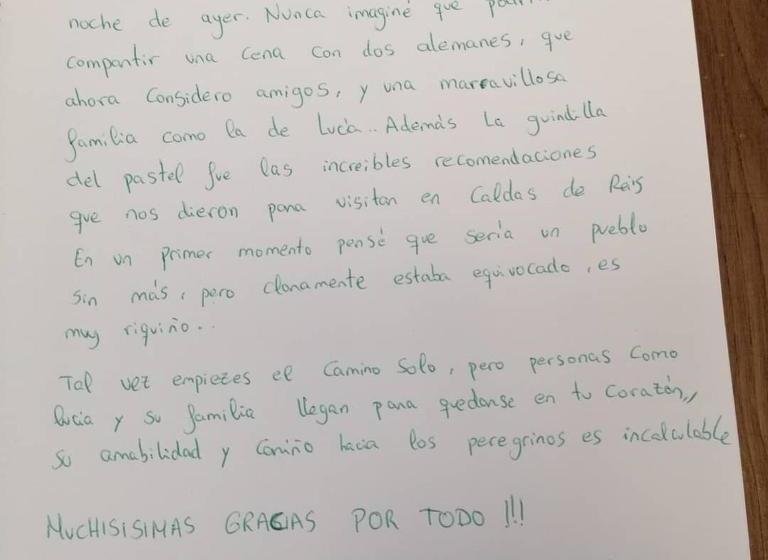 noche de ayer. Nunca imaginé que
compartir una cena con dos alemanes, que
ahora considero amigos, y una marravillosa
familia como la de Lucía.. Además la guindilla
del pastel fue las increíbles recomendaciones
que nos dieron para visitar en Caldas de Reis
En un primer momento pensé que sería un pueblo
sin más, pero claramente estaba equivocado, es
muy riquiño..
Tal vez empiezes el Camino Solo, pero personas como
lucia y su familia llegan para quedarse en tu corazón,,
su amabilidad y cariño hacia los peregrinos es incalculable
MUCHISISIMAS GRACIAS POR TODO !!!